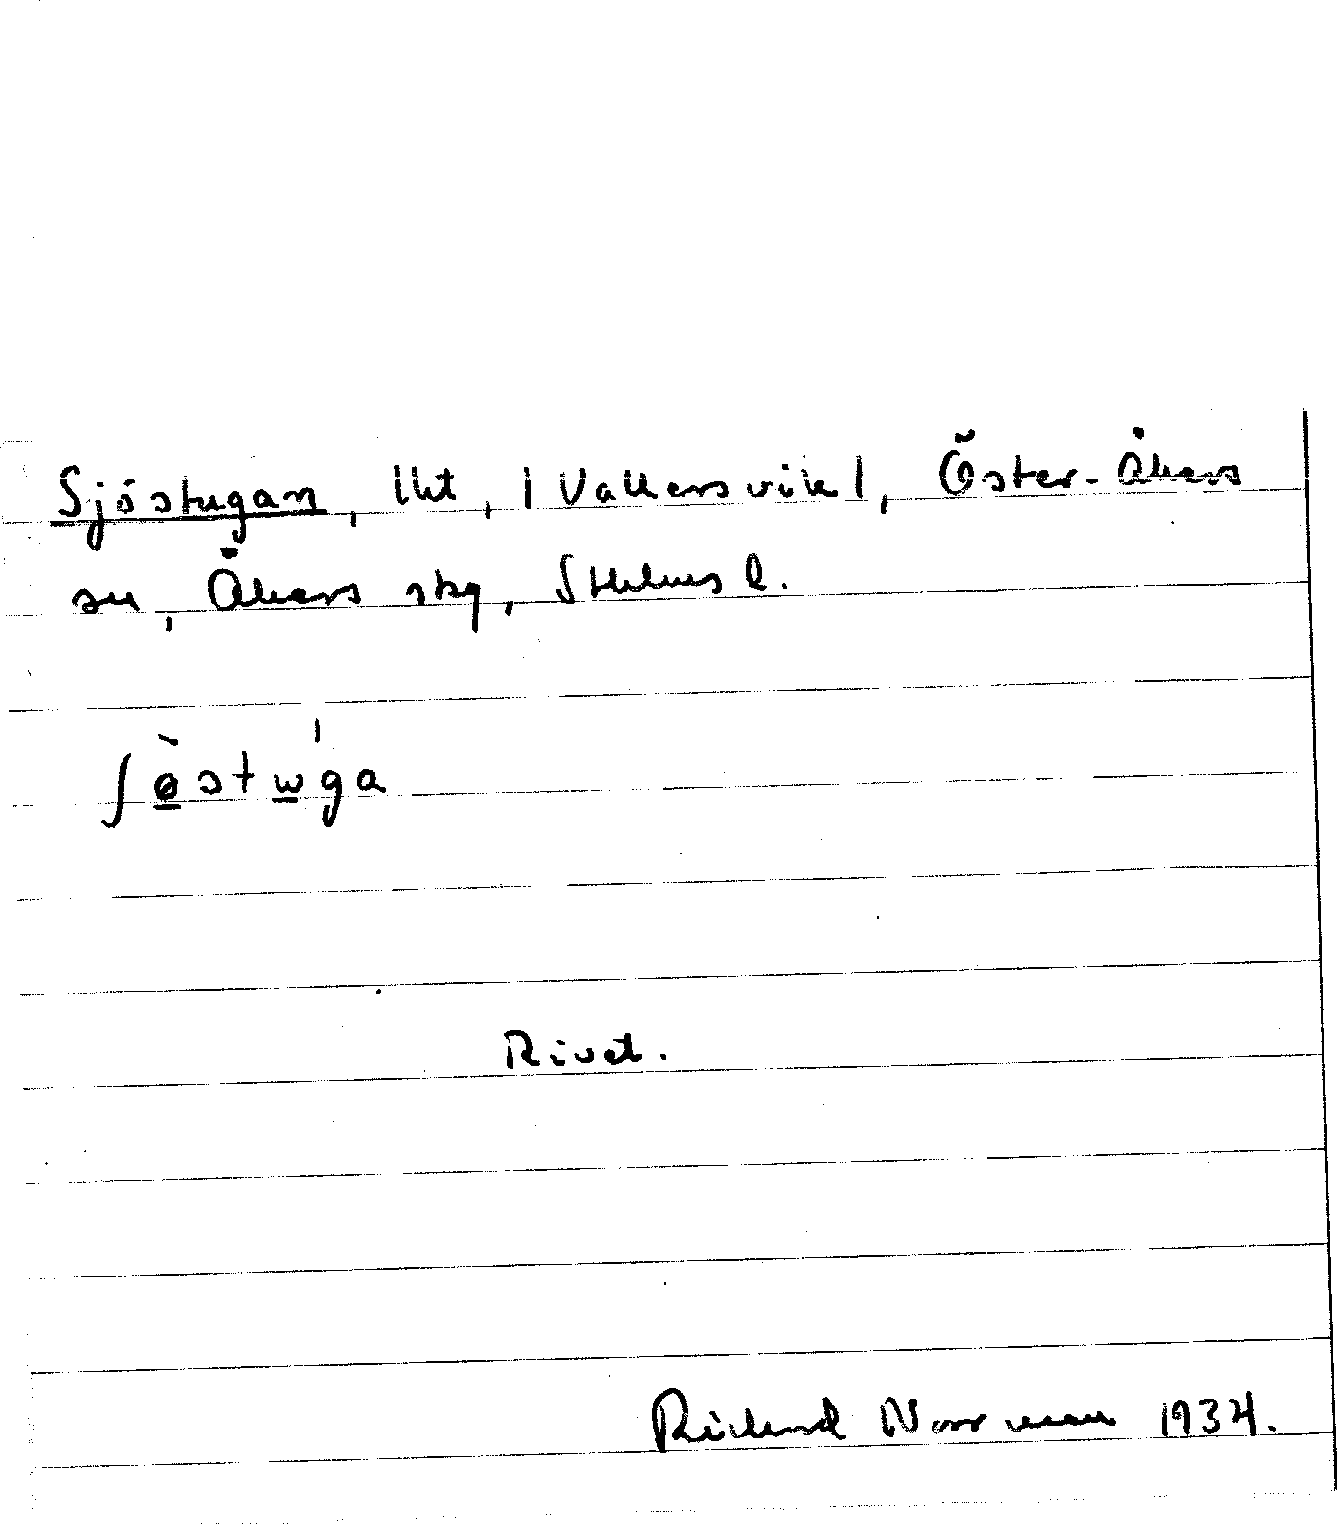 Sjöstugan, lht, | Valkersvik |, Öster-Åkers
sn, Åkers skg, Sthlms l.
ʃø̀stẃga
Rivet.
Richard Norrman 1934.